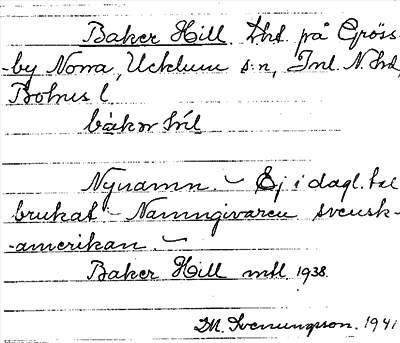 Baker Hill. Lht. på Gröss-
-by Norra, Ucklum s:n, Inl. N. hd,
Bohus l.
bàkər híl
Nynamn. – Ej i dagl. tal
brukat. – Namngivaren svensk-
-amerikan. –
Baker Hill mtl 1938.
M. Svenungsson. 1941